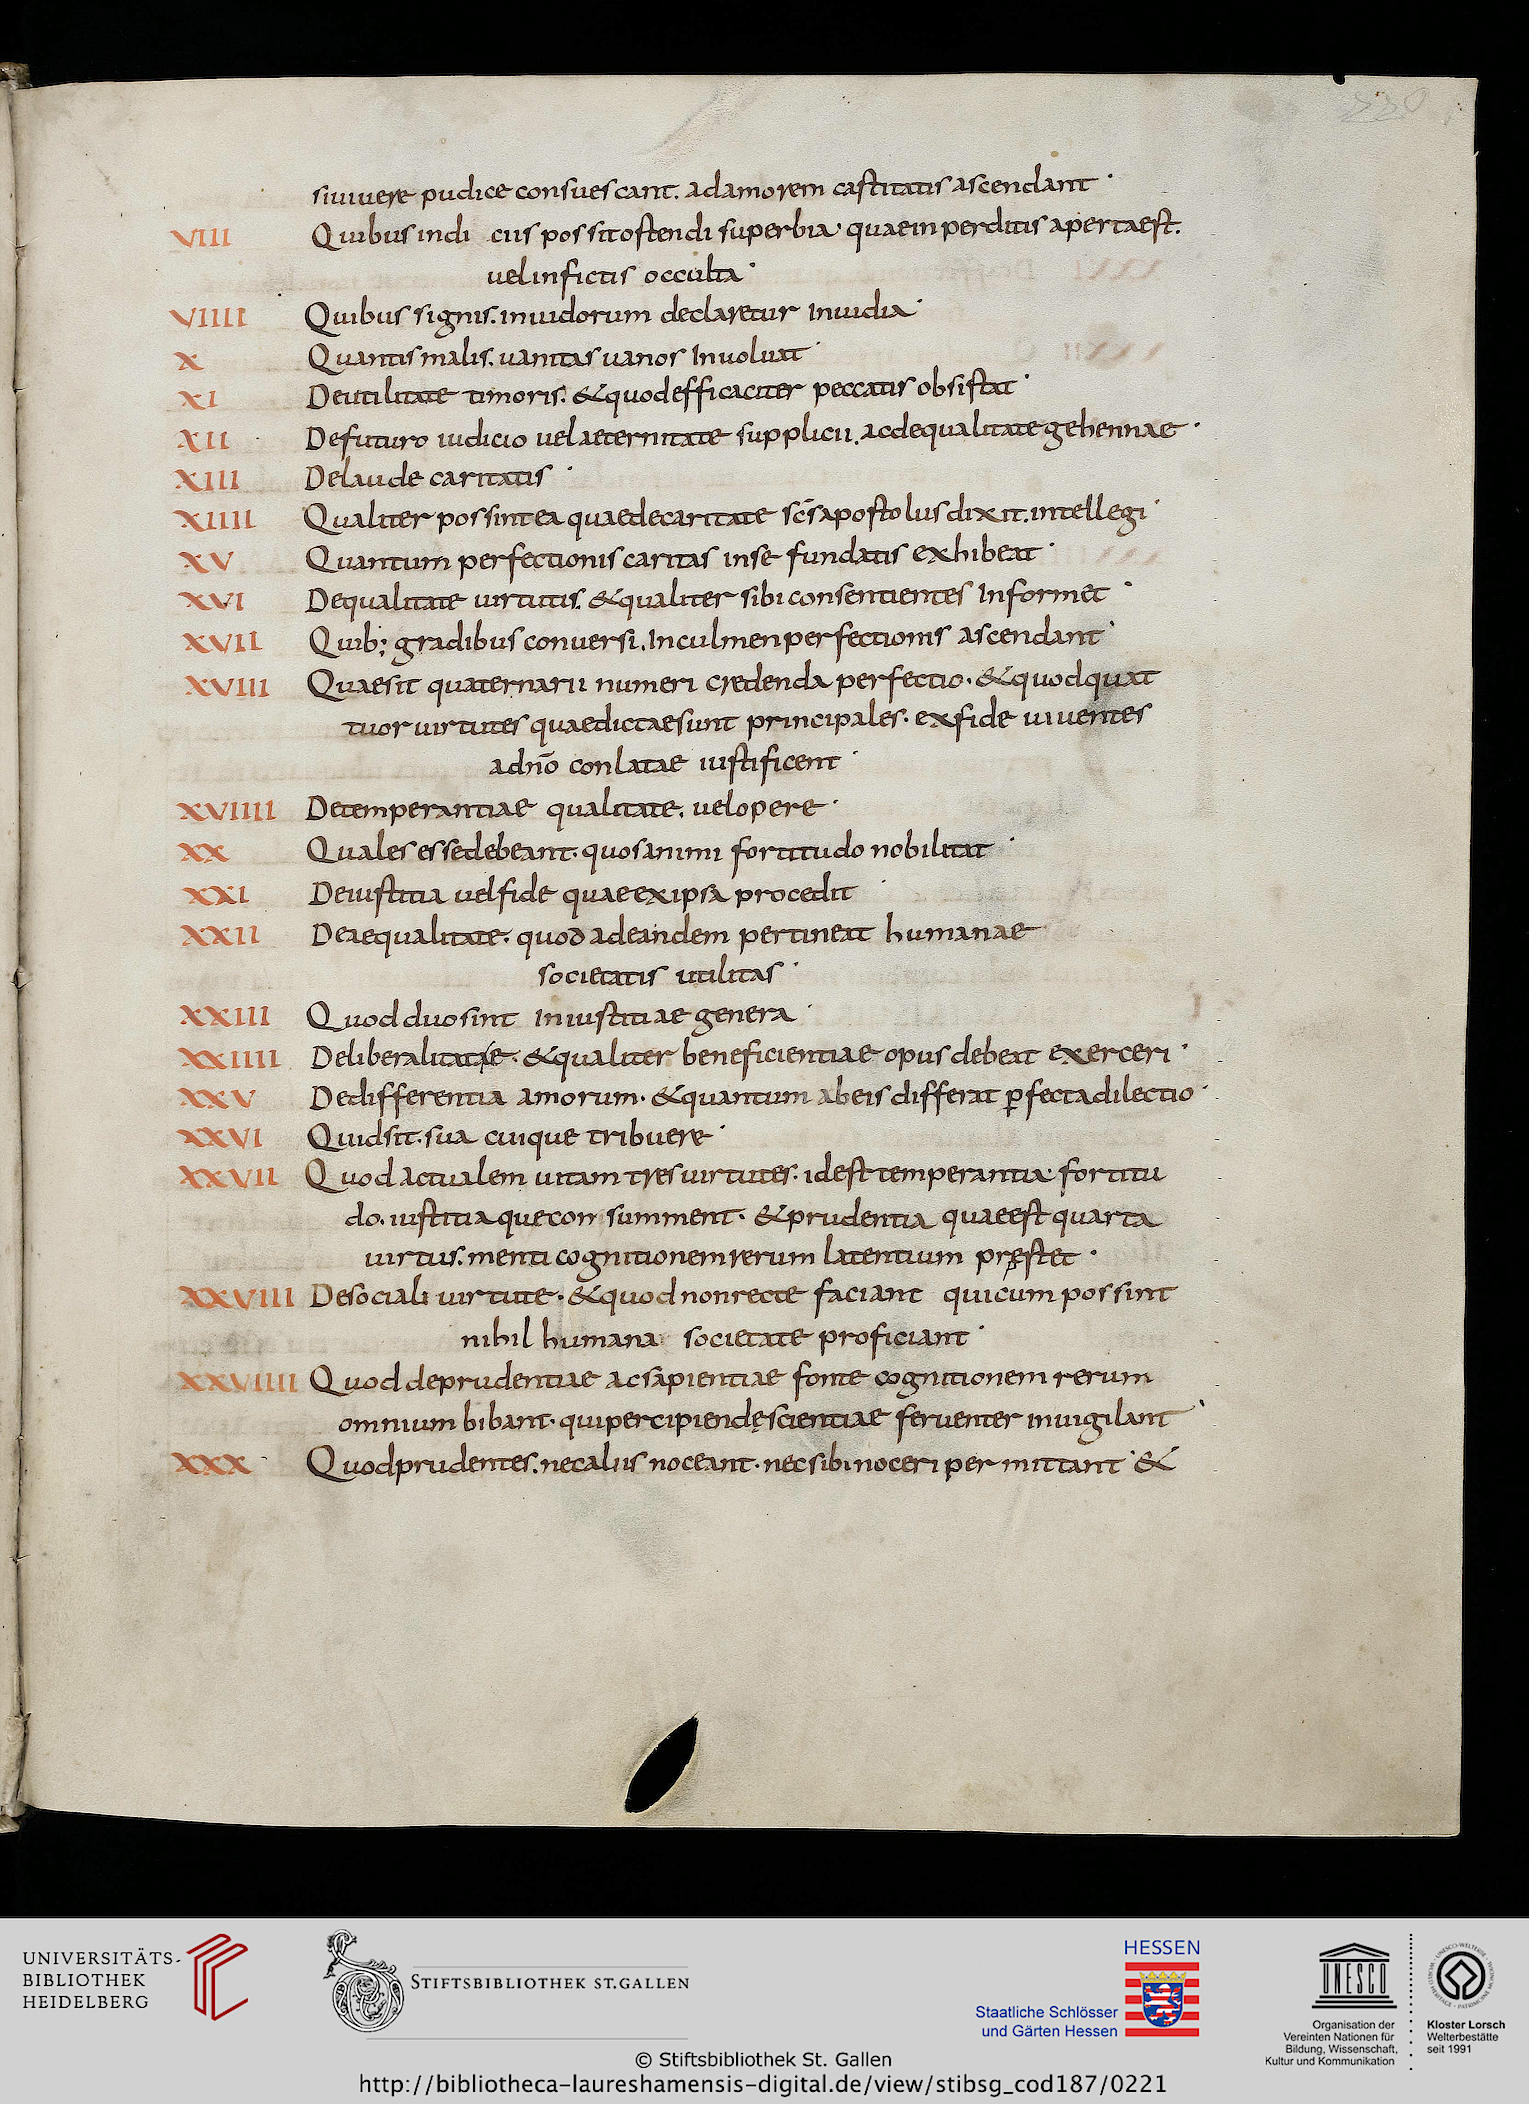 220
siuiuere pudice consuescant. adamorem castitatis ascendant·
VIII Quibus indi ciis possit ostendi superbia· quae in perditis aperta est.
uel in fictis occulta·
VIIII Quibus signis. inuidorum declaretur Inuidia·
X Quantis malis. uanitas uanos Inuoluat·
XI De utilitate timoris. & quod efficaciter peccatis obsistat·
XII De futuro iudicio uel aeternitate supplicii. ac de qualitate gehennae·
XIII De laude caritatis·
XIIII Qualiter possint ea quae de caritate scs̄ apostolus dixit. intellegi·
XV Quantum perfectionis caritas in se fundatis exhibeat·
XVI De qualitate uirtutis. & qualiter sibi consentientes Informet·
XVII Quib; gradibus conuersi. In culmen perfectionis ascendant·
XVIII Quae sit quaternarii numeri credenda perfectio· & quod quat
tuor uirtutes quae dictae sunt principales· ex fide uiuentes
ad dn̄o conlatae iustificent·
XVIIII De temperantiae qualitate. uel opere·
XX Quales esse debeant· quos animi fortitudo nobilitat·
XXI De iustitia uel fide quae ex ipsa procedit·
XXII De aequalitate· quod ad eandem pertineat humanae
societatis utilitas·
XXIII Quod duo sint iniustitiae genera·
XXIIII De liberalitate· & qualiter beneficientiae opus debeat exerceri·
XXV De differentia amorum· & quantum ab eis differat ꝑfecta dilectio·
XXVI Quid sit· sua cuique tribuere·
XXVII Quod actualem uitam tres uirtutes· id est temperantia· fortitu
do· iustitiaque con summent· & prudentia quae est quarta
uirtus. menti cognitionem rerum latentium pręstet·
XXVIII De sociali uirtute· & quod non recte faciant qui cum possint
nihil humana societate proficiant·
XXVIIII Quod de prudentiae ac sapientiae fonte cognitionem rerum
omnium bibant· qui percipiendę scientiae feruenter inuigilant·
XXX Quod prudentes. nec aliis noceant· nec sibi noceri permittant· &
UNIVERSITÄTS-
BIBLIOTHEK
HEIDELBERG
STIFTSBIBLIOTHEK ST.GALLEN
HESSEN
Staatliche Schlösser
und Gärten Hessen
UNESCO
Organisation der
Vereinten Nationen für
Bildung, Wissenschaft,
Kultur und Kommunikation
Kloster Lorsch
Welterbestätte
seit 1991
© Stiftsbibliothek St. Gallen
http://bibliotheca-laureshamensis-digital.de/view/stibsg_cod187/0221